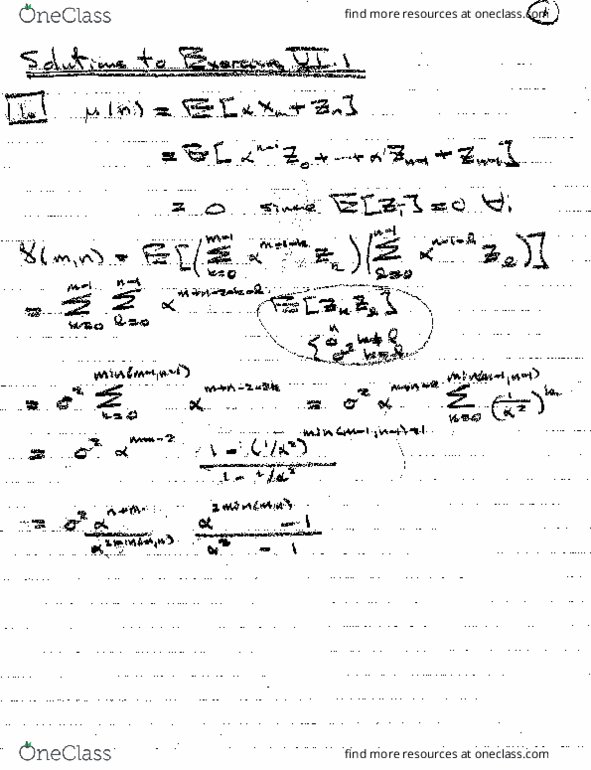 OneClass
find more resources at oneclass.com
Solutions to Exercise VI.1
1. μ(n) = E[αX_n + Z_n]
= E[α^{n-1}Z_0 + ... + αZ_{n-2} + Z_{n-1}]
= 0 since E[Z_i] = 0 ∀i
γ(m,n) = E[(∑_{k=0}^{m-1} α^{m-1-k} Z_k)(∑_{l=0}^{n-1} α^{n-1-l} Z_l)]
= ∑_{k=0}^{m-1} ∑_{l=0}^{n-1} α^{m+n-2-k-l} E[Z_k Z_l]
{0 k≠l
σ² k=l
= σ² ∑_{k=0}^{min(m-1,n-1)} α^{m+n-2-2k} = σ² α^{m+n-2} ∑_{k=0}^{min(m-1,n-1)} (1/α²)^k
= σ² α^{m+n-2} (1-(1/α²)^{min(m-1,n-1)+1})/(1-1/α²)
= σ² α^{n+m}/α^{2min(m,n)} (α^{2min(m,n)} - 1)/(α² - 1)
OneClass
find more resources at oneclass.com